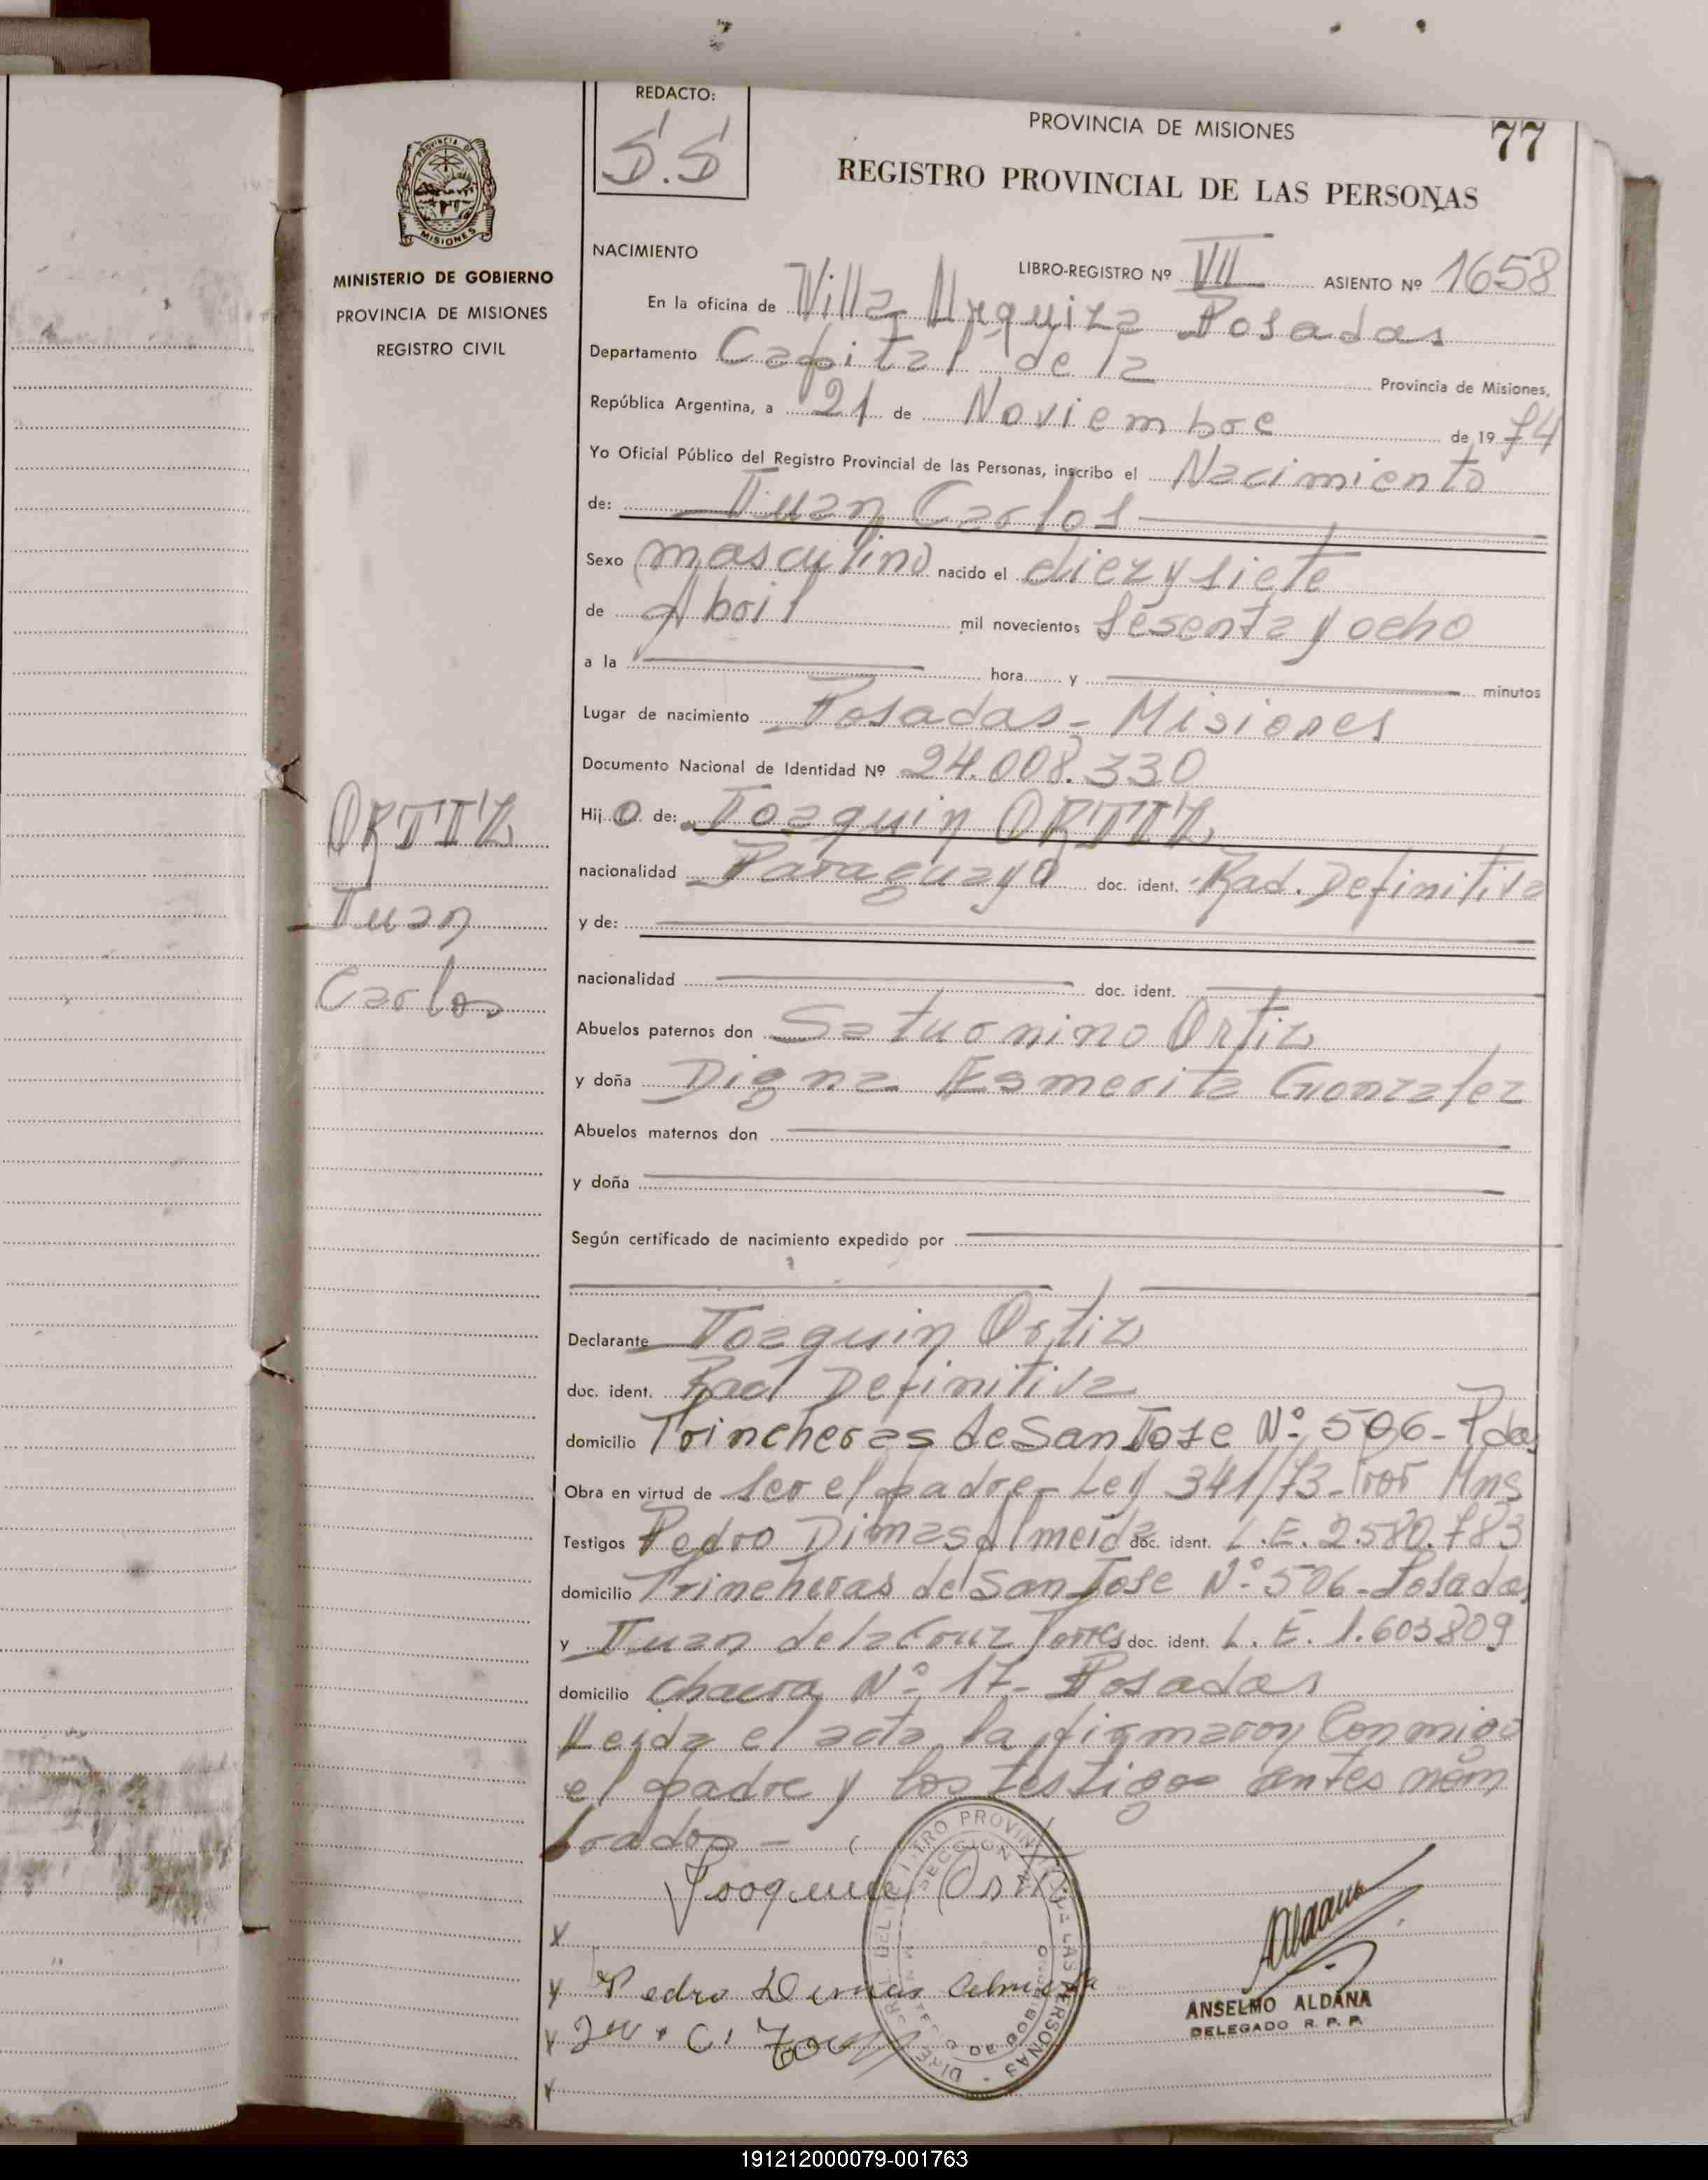 REDACTO:
S.S
PROVINCIA DE MISIONES
77
REGISTRO PROVINCIAL DE LAS PERSONAS
PROVINCIA DE
MISIONES
MINISTERIO DE GOBIERNO
PROVINCIA DE MISIONES
REGISTRO CIVIL
NACIMIENTO
LIBRO-REGISTRO Nº VII ASIENTO Nº 1658
En la oficina de Villa Urquiza Posadas
Departamento Capital de la Provincia de Misiones,
República Argentina, a 21 de Noviembre de 19 74
Yo Oficial Público del Registro Provincial de las Personas, inscribo el Nacimiento
de: Juan Carlos
Sexo masculino nacido el diez y siete
de Abril mil novecientos sesenta y ocho
a la hora y minutos
Lugar de nacimiento Posadas - Misiones
Documento Nacional de Identidad Nº 24.008.330
Hij o de: Joaquin ORTIZ
ORTIZ
nacionalidad Paraguaya doc. ident. Rad. Definitiva
Juan
y de:
Carlos
nacionalidad doc. ident.
Abuelos paternos don Saturnino Ortiz
y doña Digna Esmerita Gonzalez
Abuelos maternos don
y doña
Según certificado de nacimiento expedido por
Declarante Joaquin Ortiz
doc. ident. Rad Definitiva
domicilio Trincheras de San Jose Nº 506 - Pdas
Obra en virtud de ser el padre - Ley 341/73 - Mns
Testigos Pedro Dimas Almeida doc. ident. L.E. 2.580.783
domicilio Trincheras de San Jose Nº 506 - Posadas
y Juan de la Cruz Torres doc. ident. L.E. 1.603809
domicilio chacra Nº 17 - Posadas
Leida el acta, la firmaron Conmigo
el padre y los testigos antes nom
brados -
Joaquin Ortiz
X
Pedro Dimas Almeida
ANSELMO ALDANA
DELEGADO R. P. P.
191212000079-001763